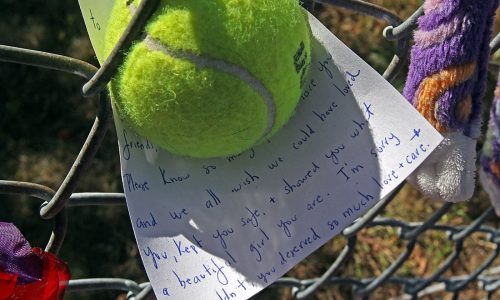 to
friend,
Please know so many
and we all wish we could have loved
you, kept you safe, + showed you what
a beautiful girl you are. I'm sorry
you deserved so much love + care.